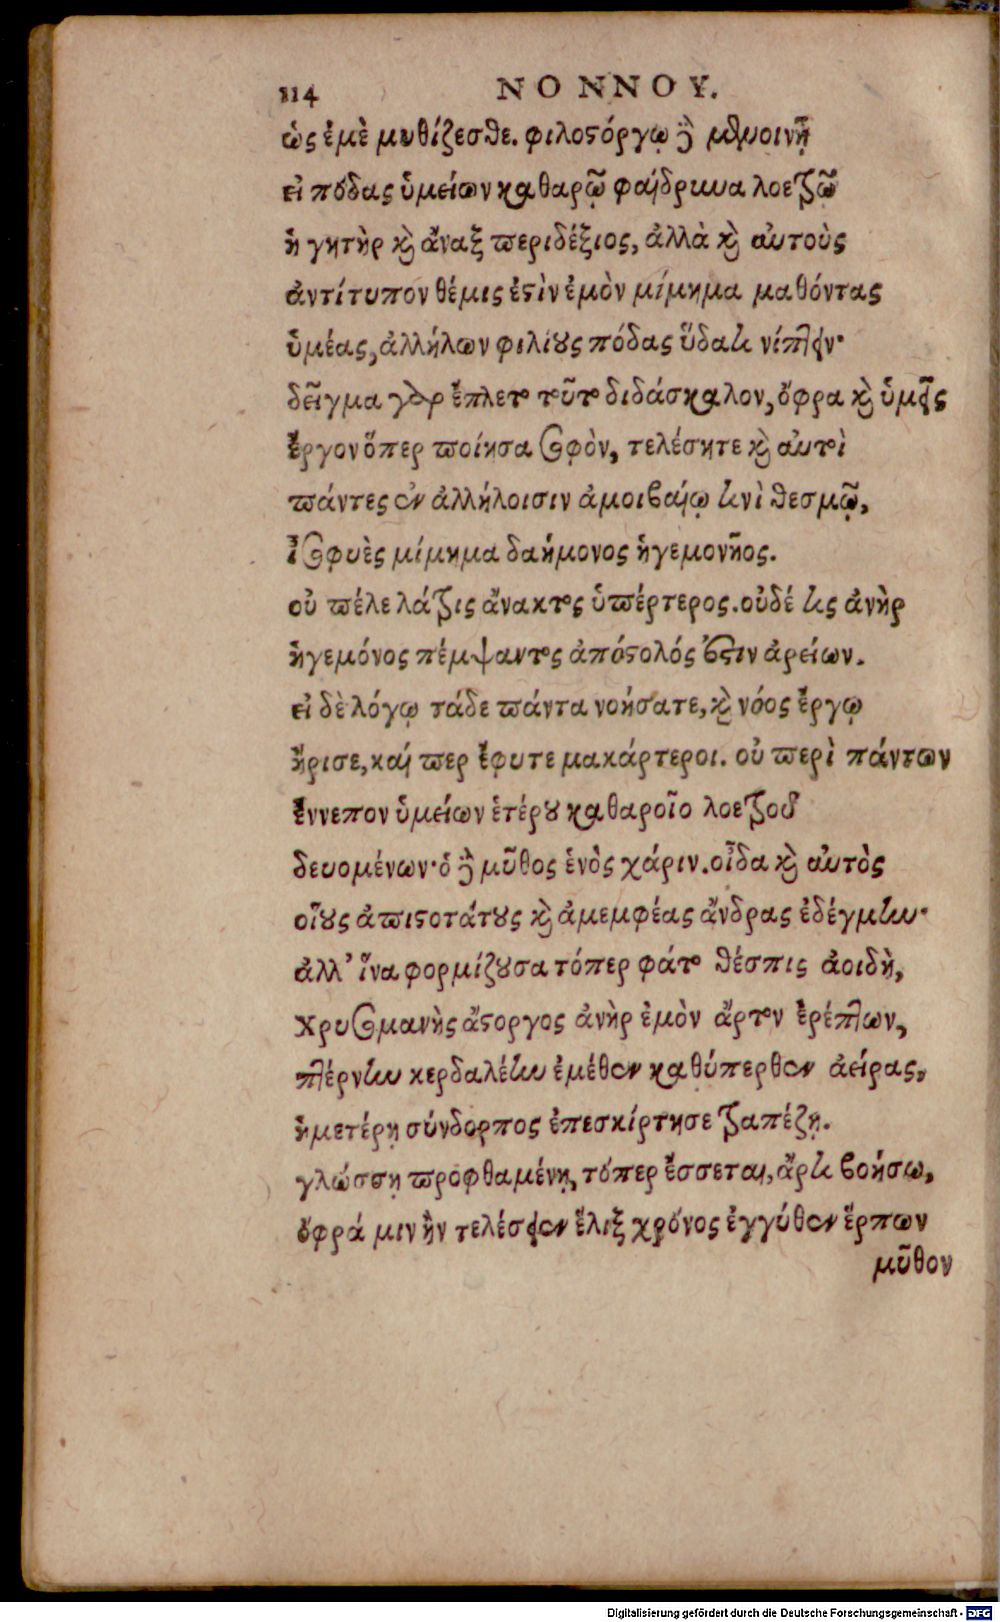 114 ΝΟΝΝΟΥ.
ὡς ἐμὲ μυθίζεσθε. φιλοστόργῳ δὲ μενοινῇ
εἰ πόδας ὑμείων καθαρῷ φαίδρυνα λοετρῷ
ἡγητὴρ καὶ ἄναξ περιδέξιος, ἀλλὰ καὶ αὐτοὺς
ἀντίτυπον θέμις ἐστὶν ἐμὸν μίμημα μαθόντας
ὑμέας, ἀλλήλων φιλίους πόδας ὕδατι νίπτειν·
δεῖγμα γὰρ ἔπλετο τοῦτο διδάσκαλον, ὄφρα καὶ ὑμεῖς
ἔργον ὅπερ ποίησα σοφὸν, τελέσητε καὶ αὐτοὶ
πάντες ἐν ἀλλήλοισιν ἀμοιβαίῳ τινὶ θεσμῷ,
ἰσοφυὲς μίμημα δαήμονος ἡγεμονῆος.
οὐ πέλε λάτρις ἄνακτος ὑπέρτερος. οὐδέ τις ἀνὴρ
ἡγεμόνος πέμψαντος ἀπόστολός ἐστιν ἀρείων.
εἰ δὲ λόγῳ τάδε πάντα νοήσατε, καὶ νόος ἔργῳ
ἤρισε, καί περ ἔφυτε μακάρτεροι. οὐ περὶ πάντων
ἔννεπον ὑμείων ἑτέρου καθαροῖο λοετροῦ
δευομένων· ὁ δὲ μῦθος ἑνὸς χάριν. οἶδα καὶ αὐτὸς
οἵους ἀπιστοτάτους καὶ ἀμεμφέας ἄνδρας ἐδέγμην·
ἀλλ' ἵνα φορμίζουσα τόπερ φάτο θέσπις ἀοιδὴ,
χρυσομανὴς ἄστοργος ἀνὴρ ἐμὸν ἄρτον ἐρέπτων,
πτέρνην κερδαλέην ἐμέθεν καθύπερθεν ἀείρας,
ἡμετέρῃ σύνδορπος ἐπεσκίρτησε τραπέζῃ.
γλώσσῃ προφθαμένῃ, τόπερ ἔσσεται, ἄρτι βοήσω,
ὄφρά μιν ἢν τελέσειεν ἕλιξ χρόνος ἐγγύθεν ἕρπων
μῦθον
Digitalisierung gefördert durch die Deutsche Forschungsgemeinschaft - DFG